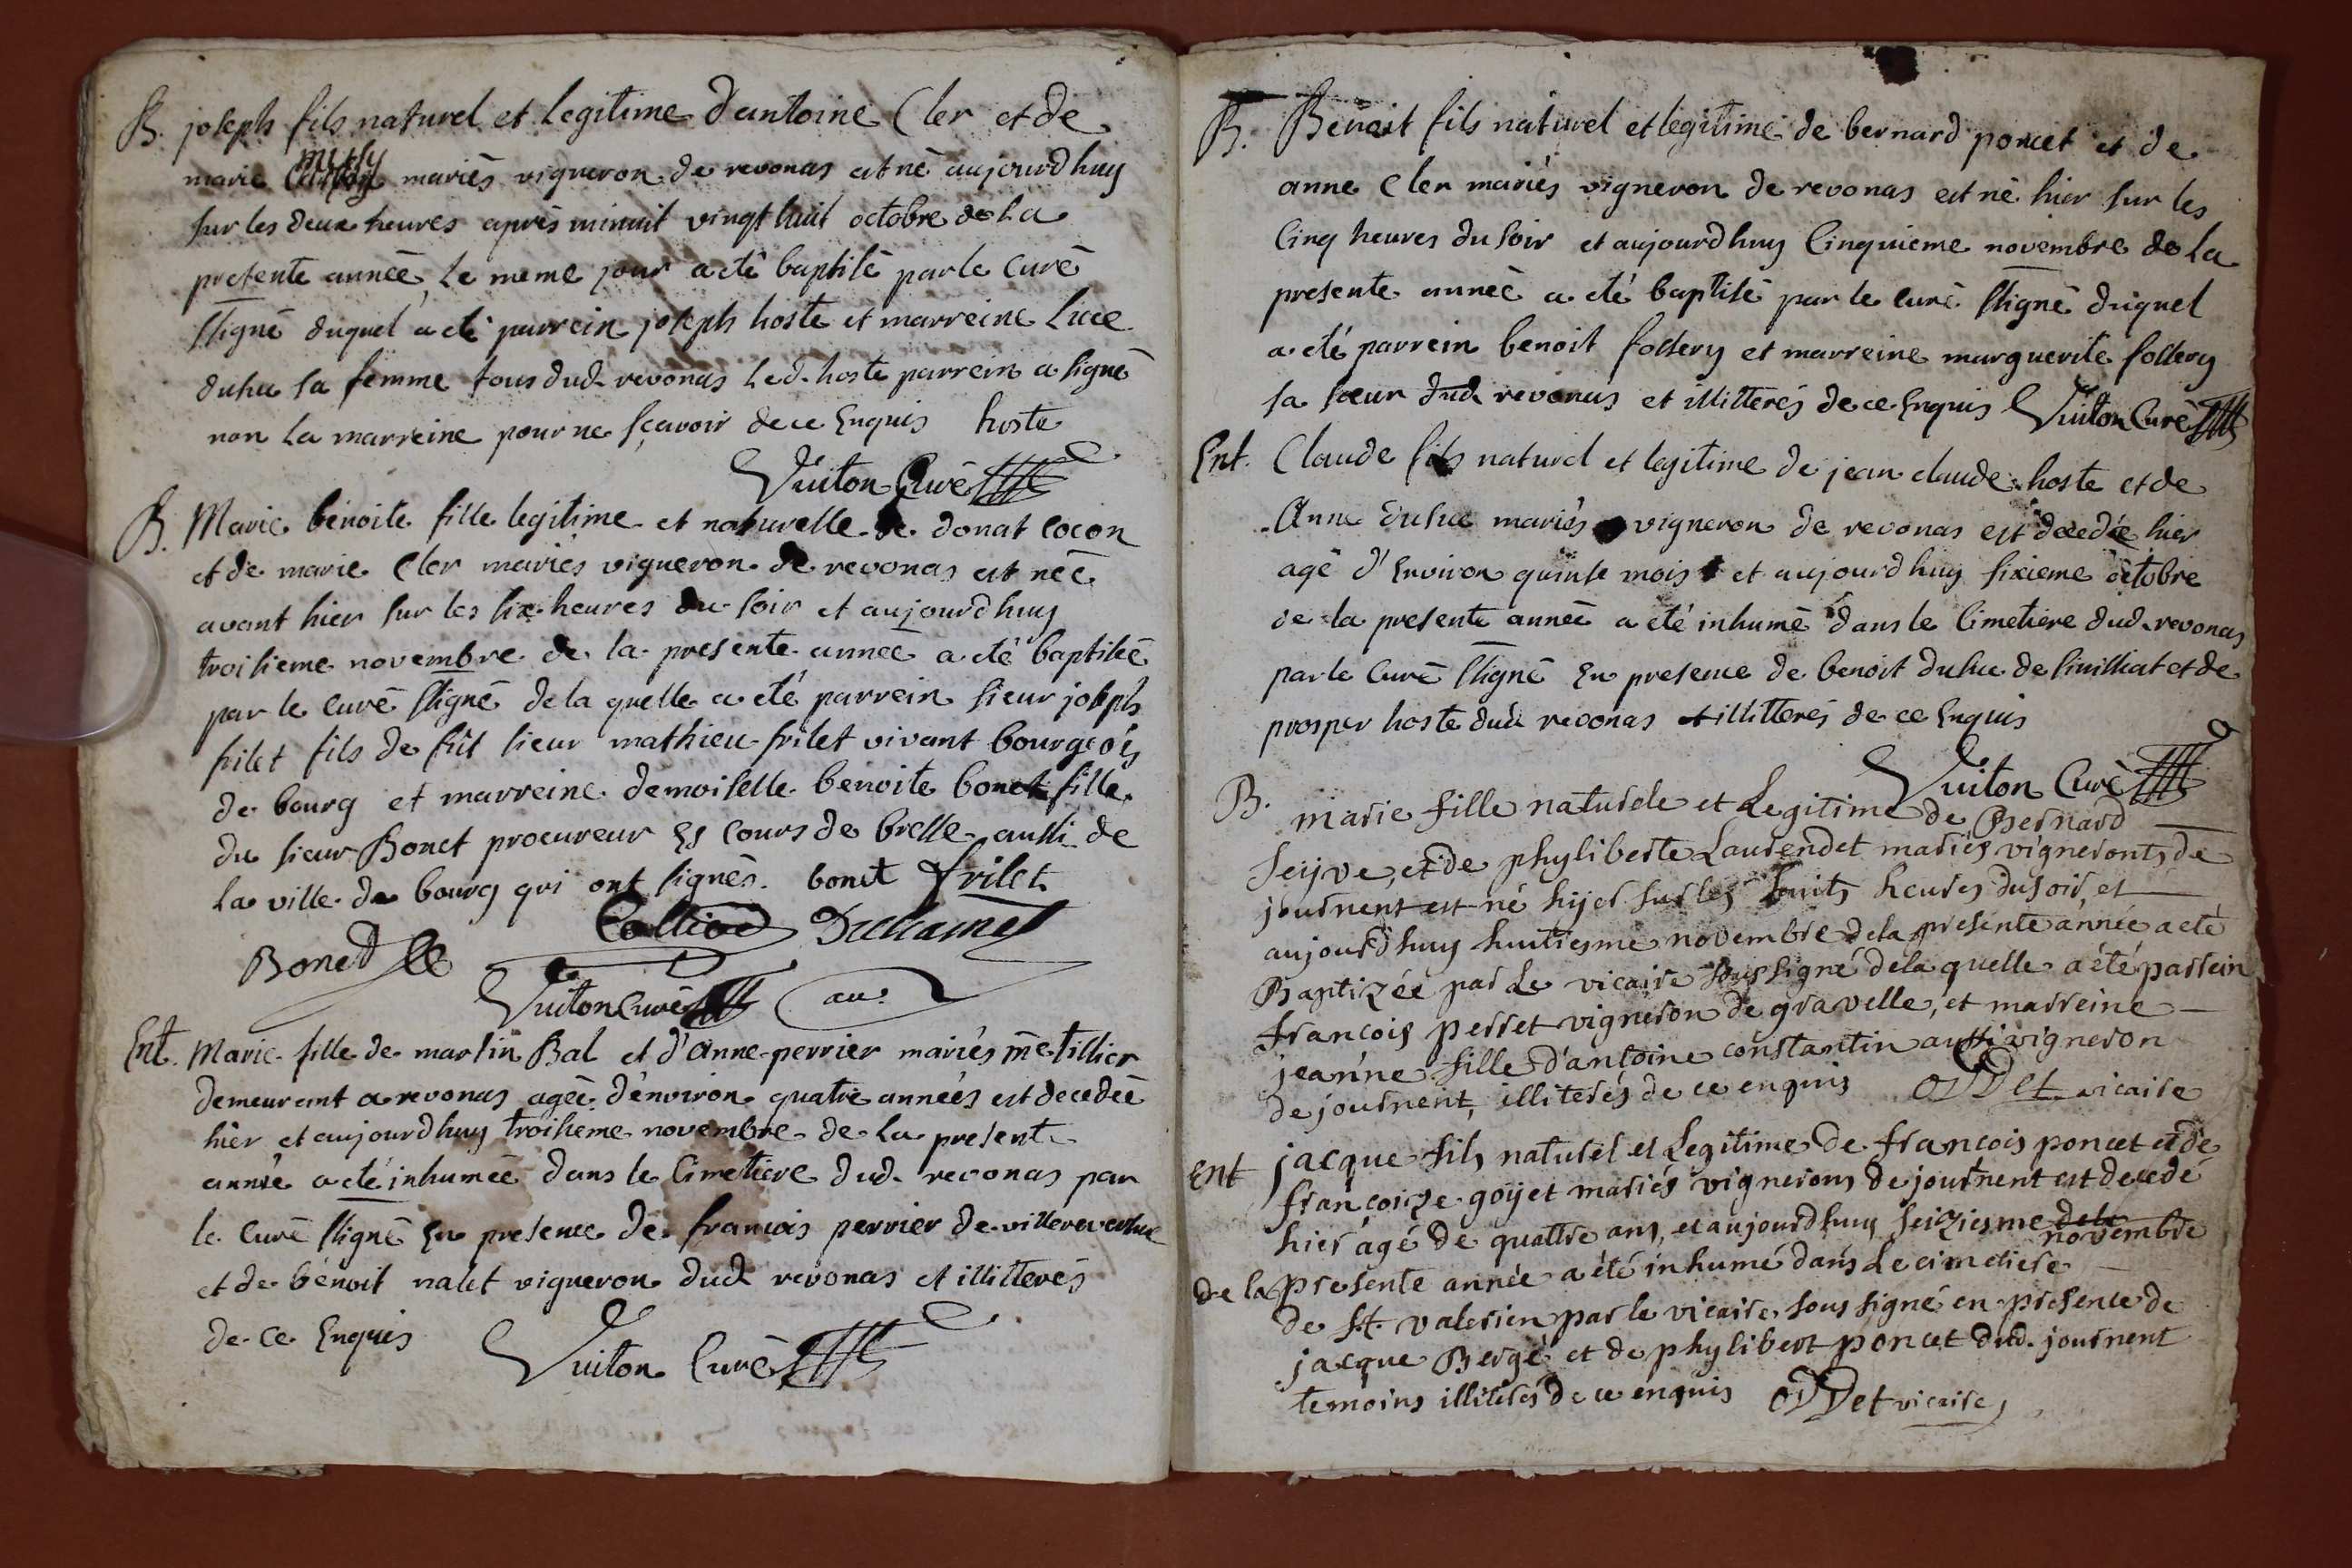 B. joseph fils naturel et legitime d'antoine Cler et de
marie mesly mariés vigneron de revonas est né aujourdhuy
sur les deux heures aprés minuit vingt huit octobre de la
presente année, le meme jour a eté baptisé par le curé
ssigné duquel a eté parrein joseph hoste et marreine Luce
dusuc sa femme tous dud. revonas led. hoste parrein a signé
non la marreine pour ne sçavoir de ce Enquis hoste
Vuiton Curé
B. Marie benoite fille legitime et naturelle de donat cocon
et de marie Cler mariés vigneron de revonas est née
avant hier sur les six heures du soir et aujourdhuy
troisieme novembre de la presente année a eté baptisée
par le curé ssigné de la quelle a eté parrein sieur joseph
frilet fils de fût sieur mathieu frilet vivant bourgeois
de bourg et marreine demoiselle benoite bonet fille
du sieur Bonet procureur Es cours de bresse aussi de
la ville de bourg qui ont signés. bonet frilet
Bonet
Vuiton Curé
Ent. Marie fille de martin Bal et d'anne perrier mariés metillier
demeurant a revonas agée d'environ quatre années est decedée
hier et aujourdhuy troisieme novembre de la presente
année a eté inhumée dans le Cimetiere dud. revonas par
le Curé ssigné En presence de francois perrier de villereversure
et de benoit nalet vigneron dud. revonas et illitterés
de ce Enquis Vuiton Curé
B. Benoit fils naturel et legitime de bernard poncet et de
anne Cler mariés vigneron de revonas est né hier sur les
Cinq heures du soir et aujourdhuy Cinquieme novembre de la
presente année a eté baptisé par le curé ssigné duquel
a eté parrein benoit follery et marreine marguerite follery
sa soeur dud. revonas et illitterés de ce Enquis Vuiton Curé
Ent. Claude fils naturel et legitime de jean claude hoste et de
Anne dusuc mariés vigneron de revonas est decedée hier
agé d'Environ quinse mois et aujourdhuy sixieme octobre
de la presente année a eté inhumé dans le Cimetiere dud. revonas
par le Curé ssigné En presence de benoit dusuc de simillat et de
prosper hoste dud. revonas et illitterés de ce Enquis
Vuiton Curé
B. marie fille naturele et Legitime de Bernard
seyve, et de phyliberte Laurendet mariés vigneronts de
journent est né hijer sur les huits heures du soir, et
aujourdhuy huitiesme novembre de la presente année a eté
Baptizée par Le vicaire soussigné de la quelle a été parrein
francois perret vigneron de gravelle, et marreine
jeanne fille d'antoine constantin aussi vigneron
de journent, illiterés de ce enquis ODDet vicaire
Ent jacque fils naturel et Legitime de francois poncet et de
françoize goyet mariés vignerons de journent est decedé
hier âgé de quattre ans, et aujourdhuy seiziesme dela
novembre
de la presente année a été inhumé dans Le cimetiere
de St. valerien par le vicaire sous signé en presence de
jacque Bergé et de phylibert poncet dud. journent
temoins illiterés de ce enquis ODDet vicaire